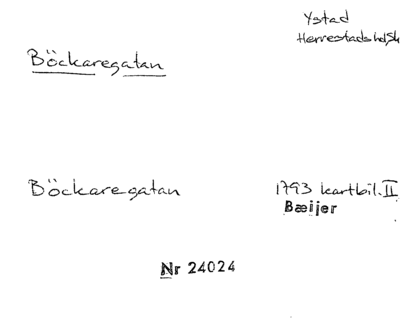 Ystad
Herrestads hd, Sk
Böckaregatan
Böckaregatan 1793 kartbil. II
Bæijer
Nr 24024